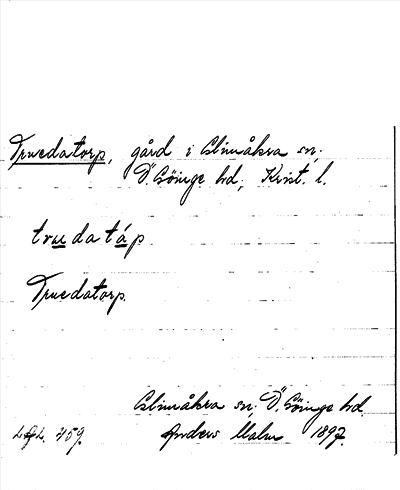 Truedatorp, gård i Glimåkra sn,
Ö. Göinge hd, Krist. l.
truedatáp
Truedatorp.
Glimåkra sn, Ö. Göinge hd.
459. Anders Malm 1897.